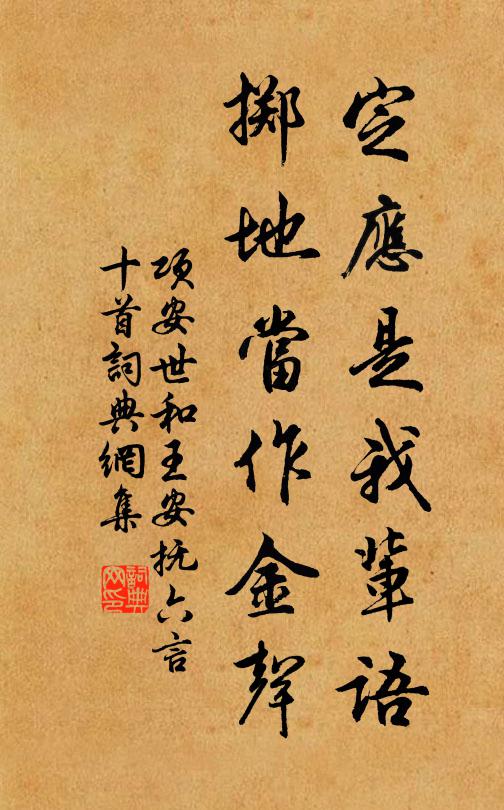 定應是我輩語
擲地當作金聲
項安世和王安抚六言
十首詞典網集
詞典網印